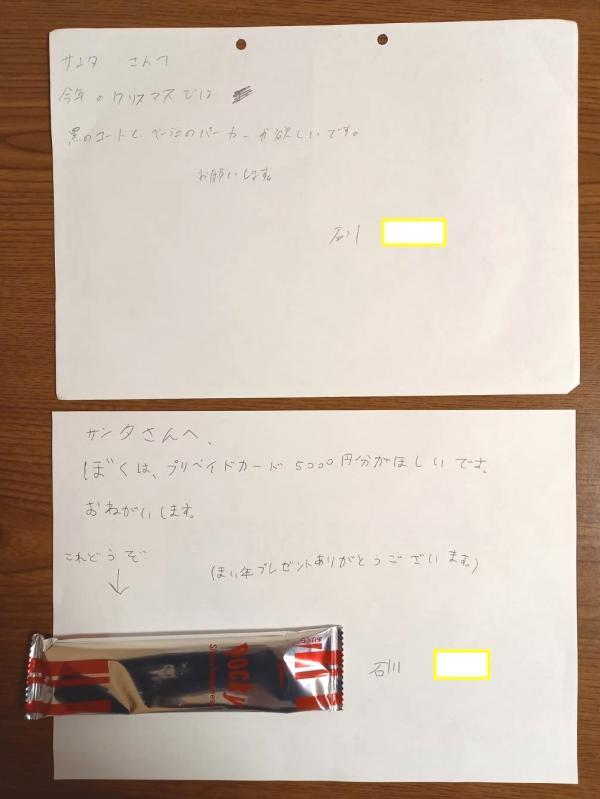 サンタ さんへ
今年のクリスマスでは
黒のコートと、ベージュのパーカーが欲しいです。
お願いします。
石川
サンタさんへ、
ぼくは、プリペイドカード5000円分がほしいです。
おねがいします。
これどうぞ
(まい年プレゼントありがとうございます。)
Pocky
石川